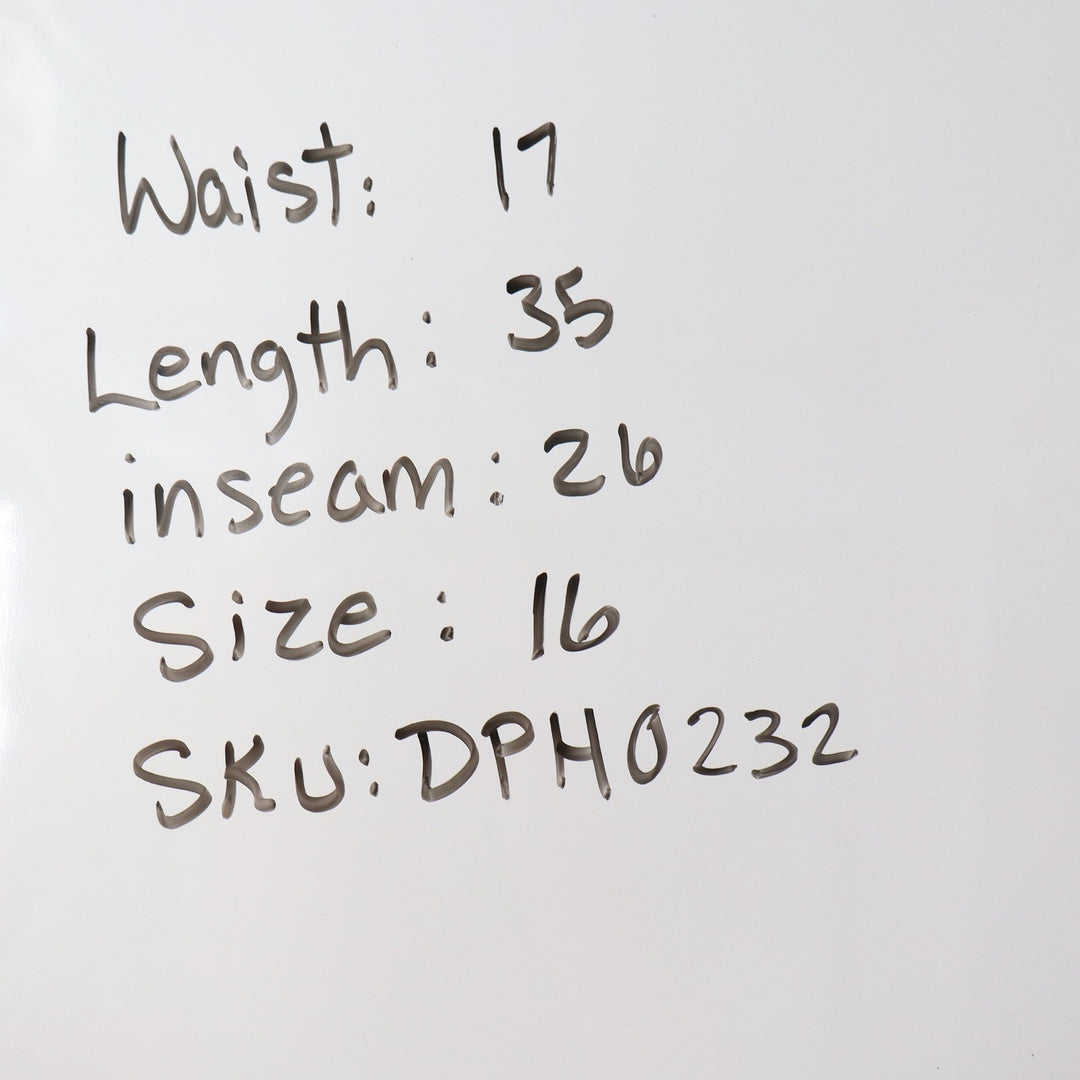 Waist: 17
Length: 35
inseam: 26
Size: 16
SKU: DPH0232